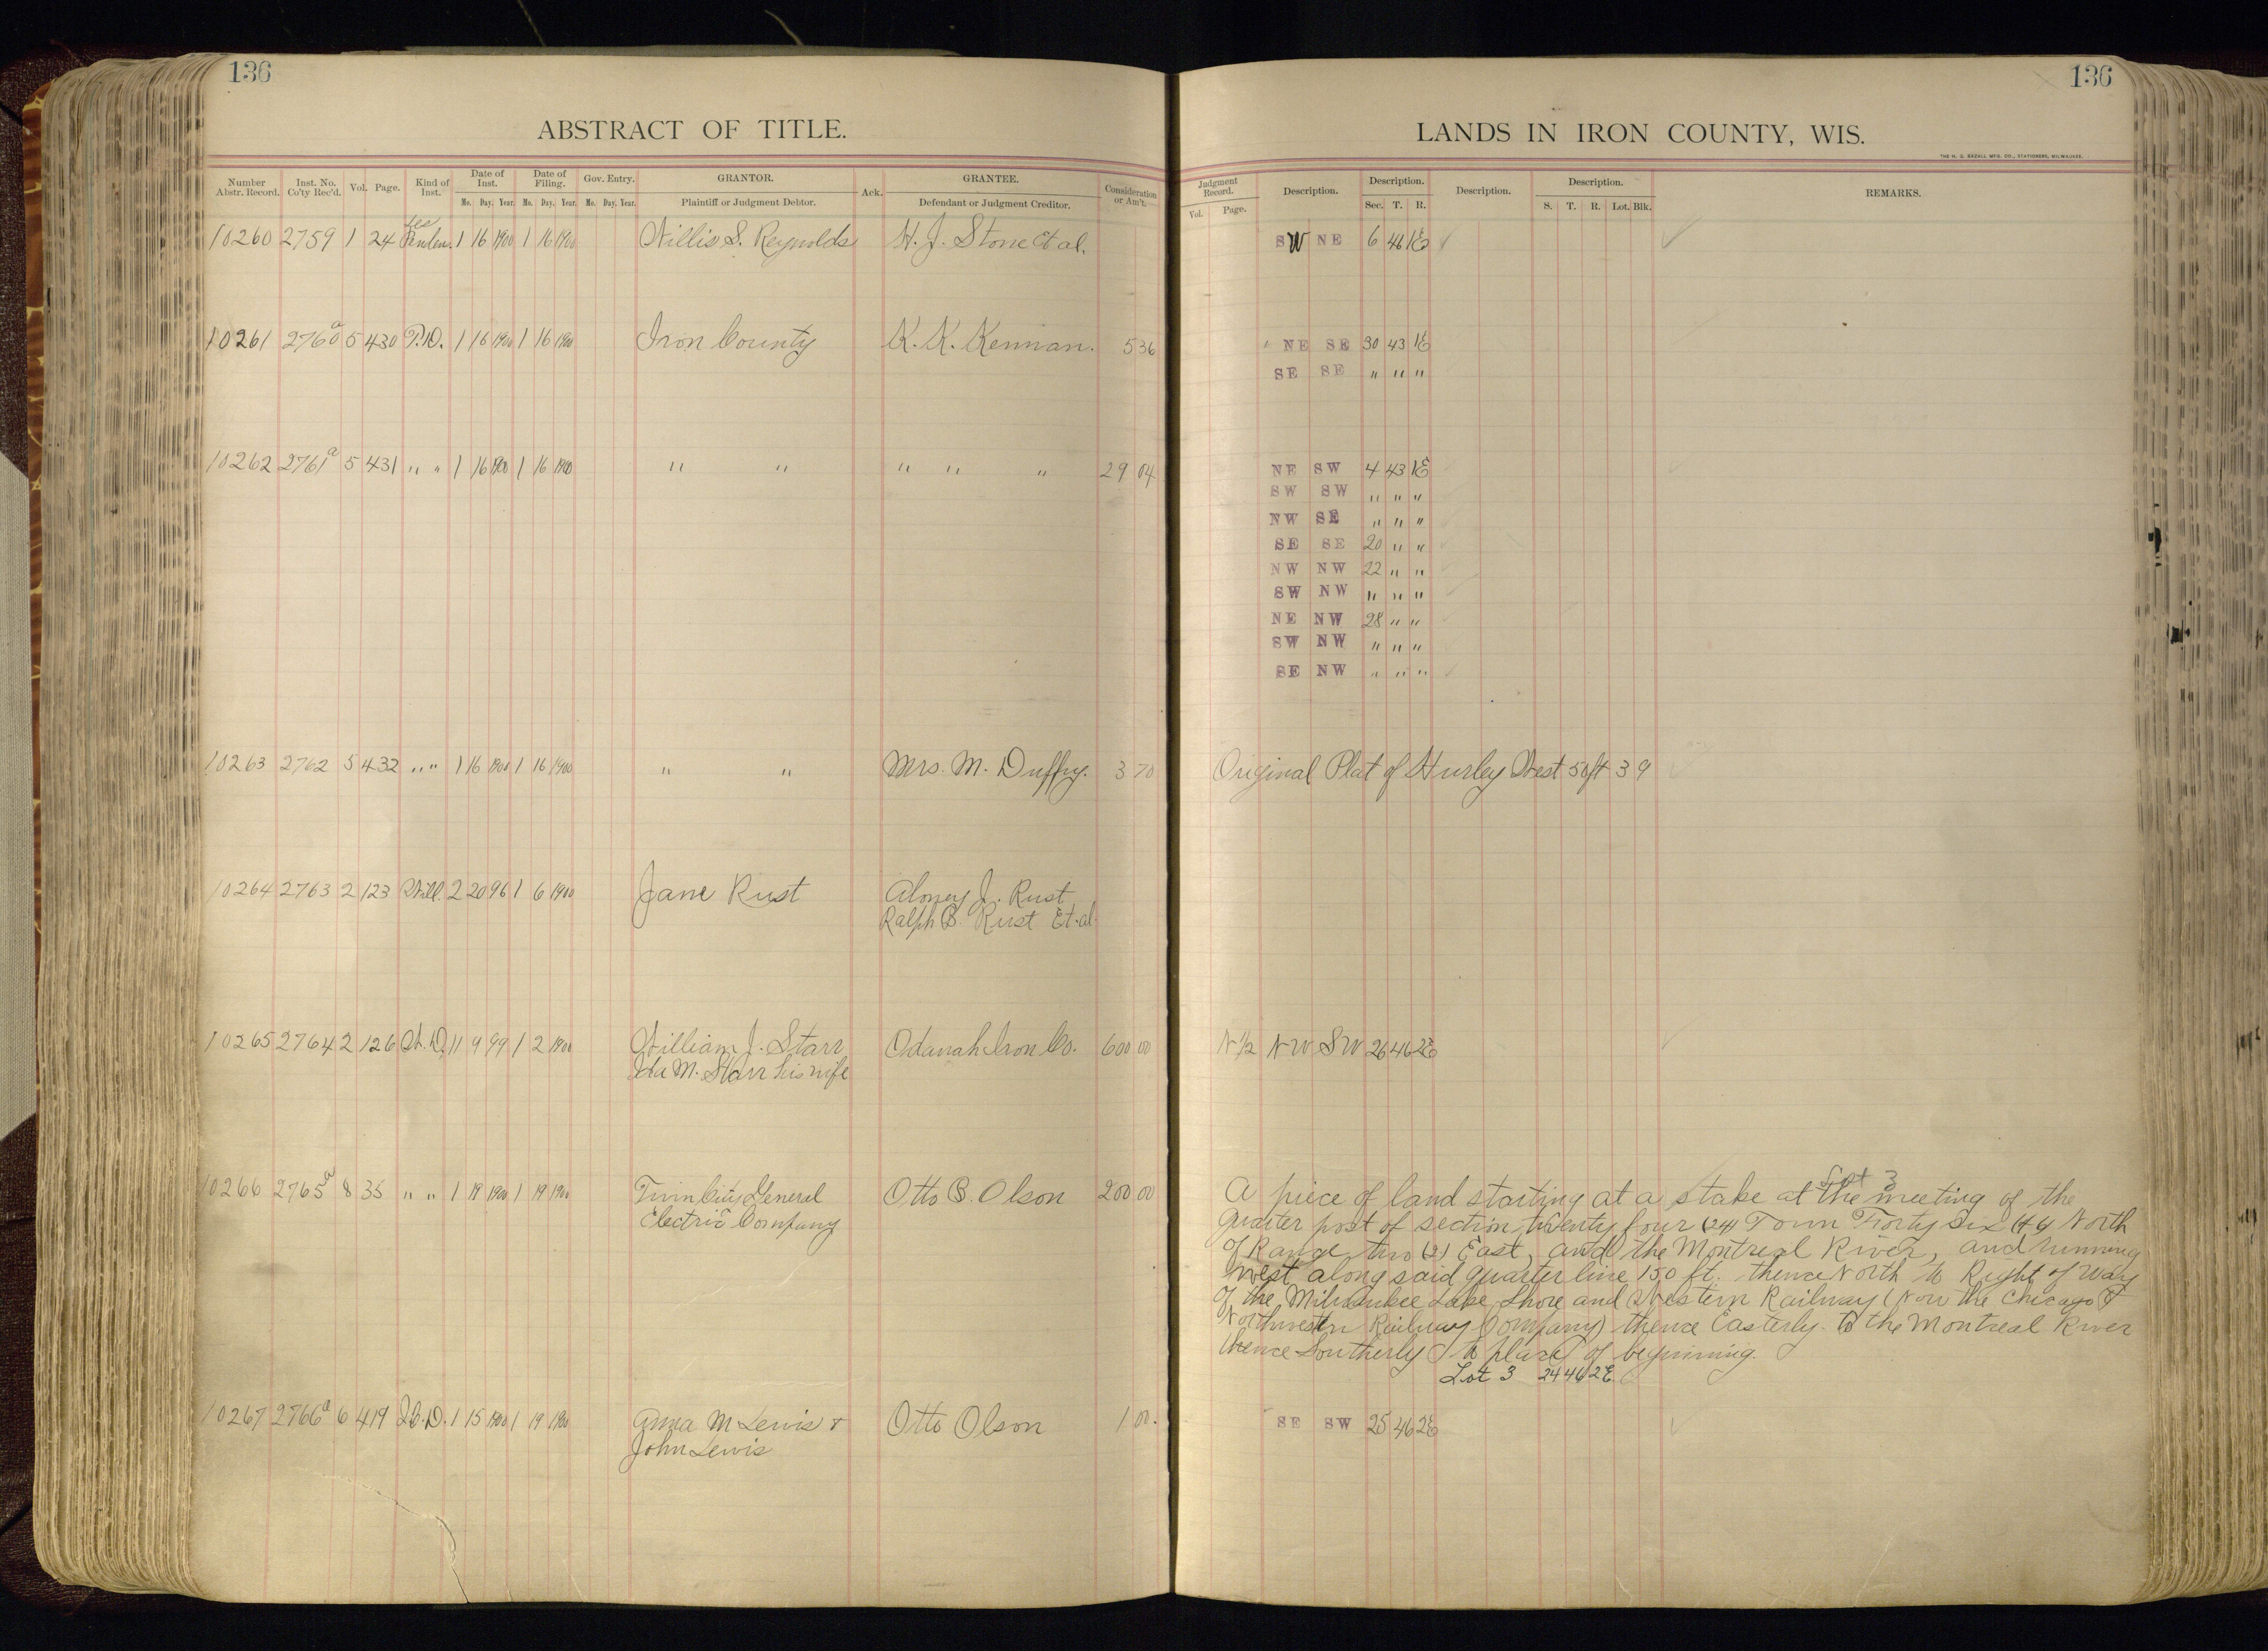 136
136
ABSTRACT OF TITLE.
LANDS IN IRON COUNTY, WIS.
THE H. G. RAZALL MFG. CO., STATIONERS, MILWAUKEE.
Number Abstr. Record. Inst. No. Co'ty Rec'd. Vol. Page. Kind of Inst. Date of Inst. Mo. Day. Year. Date of Filing. Mo. Day. Year. Gov. Entry. Mo. Day. Year. GRANTOR. Plaintiff or Judgment Debtor. Ack. GRANTEE. Defendant or Judgment Creditor. Consideration or Am't.
Judgment Record. Vol. Page. Description. Description. Sec. T. R. Description. Description. S. T. R. Lot. Blk. REMARKS.
10260 2759 1 24 Les Penden. 1 16 1900 1 16 1900 Willis S. Reynolds H. J. Stone et al. SW NE 6 46 1E
10261 2760a 5 430 T.D. 1 16 1900 1 16 1900 Iron County K. K. Kennan. 5 36 NE SE 30 43 1E
SE SE " " "
10262 2761a 5 431 " " 1 16 1900 1 16 1900 " " " " " 29 04 NE SW 4 43 1E
SW SW " " "
NW SE " " "
SE SE 20 " "
NW NW 22 " "
SW NW " " "
NE NW 28 " "
SW NW " " "
SE NW " " "
10263 2762 5 432 " " 1 16 1900 1 16 1900 " " Mrs. M. Duffy. 3 70 Original Plat of Hurley West 50 ft 3 9
10264 2763 2 123 Will. 2 20 96 1 6 1900 Jane Rust Aloney J. Rust
Ralph B. Rust Et. al.
10265 2764 2 126 W.D. 11 9 99 1 2 1900 William J. Starr Odanah Iron Co. 600 00 N 1/2 NW SW 26 46 2E
Ida M. Starr his wife
10266 2765a 8 35 " " 1 19 1900 1 19 1900 Twin City General Otto B. Olson 200 00
Electric Company
Lot 3
A piece of land starting at a stake at the meeting of the
Quarter post of section twenty four (24) Town Forty Six (46) North
of Range two (2) East, and the Montreal River, and running
west along said quarter line 150 ft. thence North to Right of Way
of the Milwaukee Lake Shore and Western Railway (Now the Chicago &
Northwestern Railway Company) thence Easterly to the Montreal River
thence Southerly to place of beginning.
Lot 3 24 46 2E
10267 2766a 6 419 2.C.D. 1 15 1900 1 19 1900 Anna M Lewis & Otto Olson 1 00. SE SW 25 46 2E
John Lewis